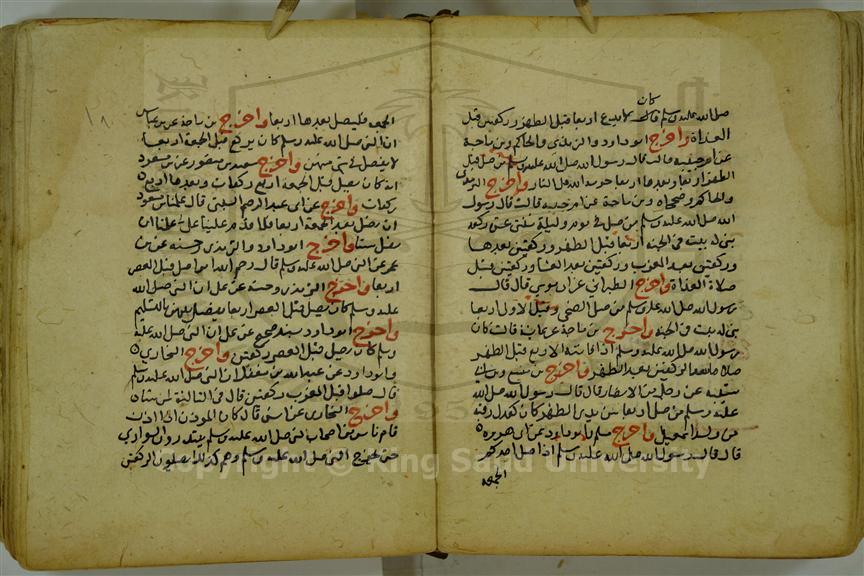 كان
صلى الله عليه وسلم كان لا يدع اربعا قبل الظهر وركعتين قبل
الغداة واخرج ابو داود والترمذي والحاكم وبن ماجة
عن ام حبيبة قالت قال رسول الله صلى الله عليه وسلم من صلى قبل
الظهر اربعا وبعدها اربعا حرمه الله على النار واخرج الترمذي
والحاكم وصححاه وبن ماجة عن ام حبيبة قالت قال رسول
الله صلى الله عليه وسلم من صلى في يوم وليلة ثنتي عشر ركعة
بنى له بيت في الجنة اربعا قبل الظهر وركعتين بعدها
وركعتين بعد المغرب وركعتين بعد العشا وركعتين قبل
صلاة الغداة واخرج الطبراني عن ابي موسى قال قال
رسول الله صلى الله عليه وسلم من صلى الضحى وقبل الاولى اربعا
بنى له بيت في الجنة واخرج بن ماجة عن عايشة قالت كان
رسول الله صلى الله عليه وسلم اذا فاتته الاربع قبل الظهر
صلاها بعد الركعتين بعد الظهر واخرج بن منيع وبن ابي
شيبة عن رجل من الانصار قال قال رسول الله صلى الله
عليه وسلم من صلى اربعا بين يدي الظهر كان كعدل رقبة
من ولد اسمعيل واخرج مسلم وابو داود عن ابي هريرة
قال قال رسول الله صلى الله عليه وسلم اذا صلى احدكم
الجمعة
الجمعة فليصل بعدها اربعا واخرج بن ماجة عن بن عباس
ان النبي صلى الله عليه وسلم كان يركع قبل الجمعة اربعا
لا يفصل في شي منهن واخرج سعيد بن منصور عن بن مسعود
انه كان يصلي قبل الجمعة اربع ركعات وبعدها اربع
ركعات واخرج عن ابي عبد الرحمن السلمي قال علمنا بن مسعود
ان نصلي بعد الجمعة اربعا فلما قدم علينا علي علمنا ان
نصلي ستا واخرج ابو داود والترمذي وحسنه عن بن
عمر عن النبي صلى الله عليه وسلم قال رحم الله امرا صلى قبل العصر
اربعا واخرج الترمذي وحسنه عن علي ان النبي صلى الله
عليه وسلم كان يصلي قبل العصر اربعا يفصل بينهن بالتسليم
واخرج ابو داود بسند صحيح عن علي ان النبي صلى الله عليه
وسلم كان يصلي قبل العصر ركعتين واخرج البخاري
وابو داود عن عبد الله بن مغفل ان النبي صلى الله عليه وسلم
قال صلوا قبل المغرب ركعتين قال في الثالثة لمن شاء
واخرج البخاري عن انس قال كان الموذن اذا اذن
قام ناس من اصحاب النبي صلى الله عليه وسلم يبتدرون السواري
حتى يخرج النبي صلى الله عليه وسلم وهم كذلك يصلون الركعتين
Copyright © King Saud University